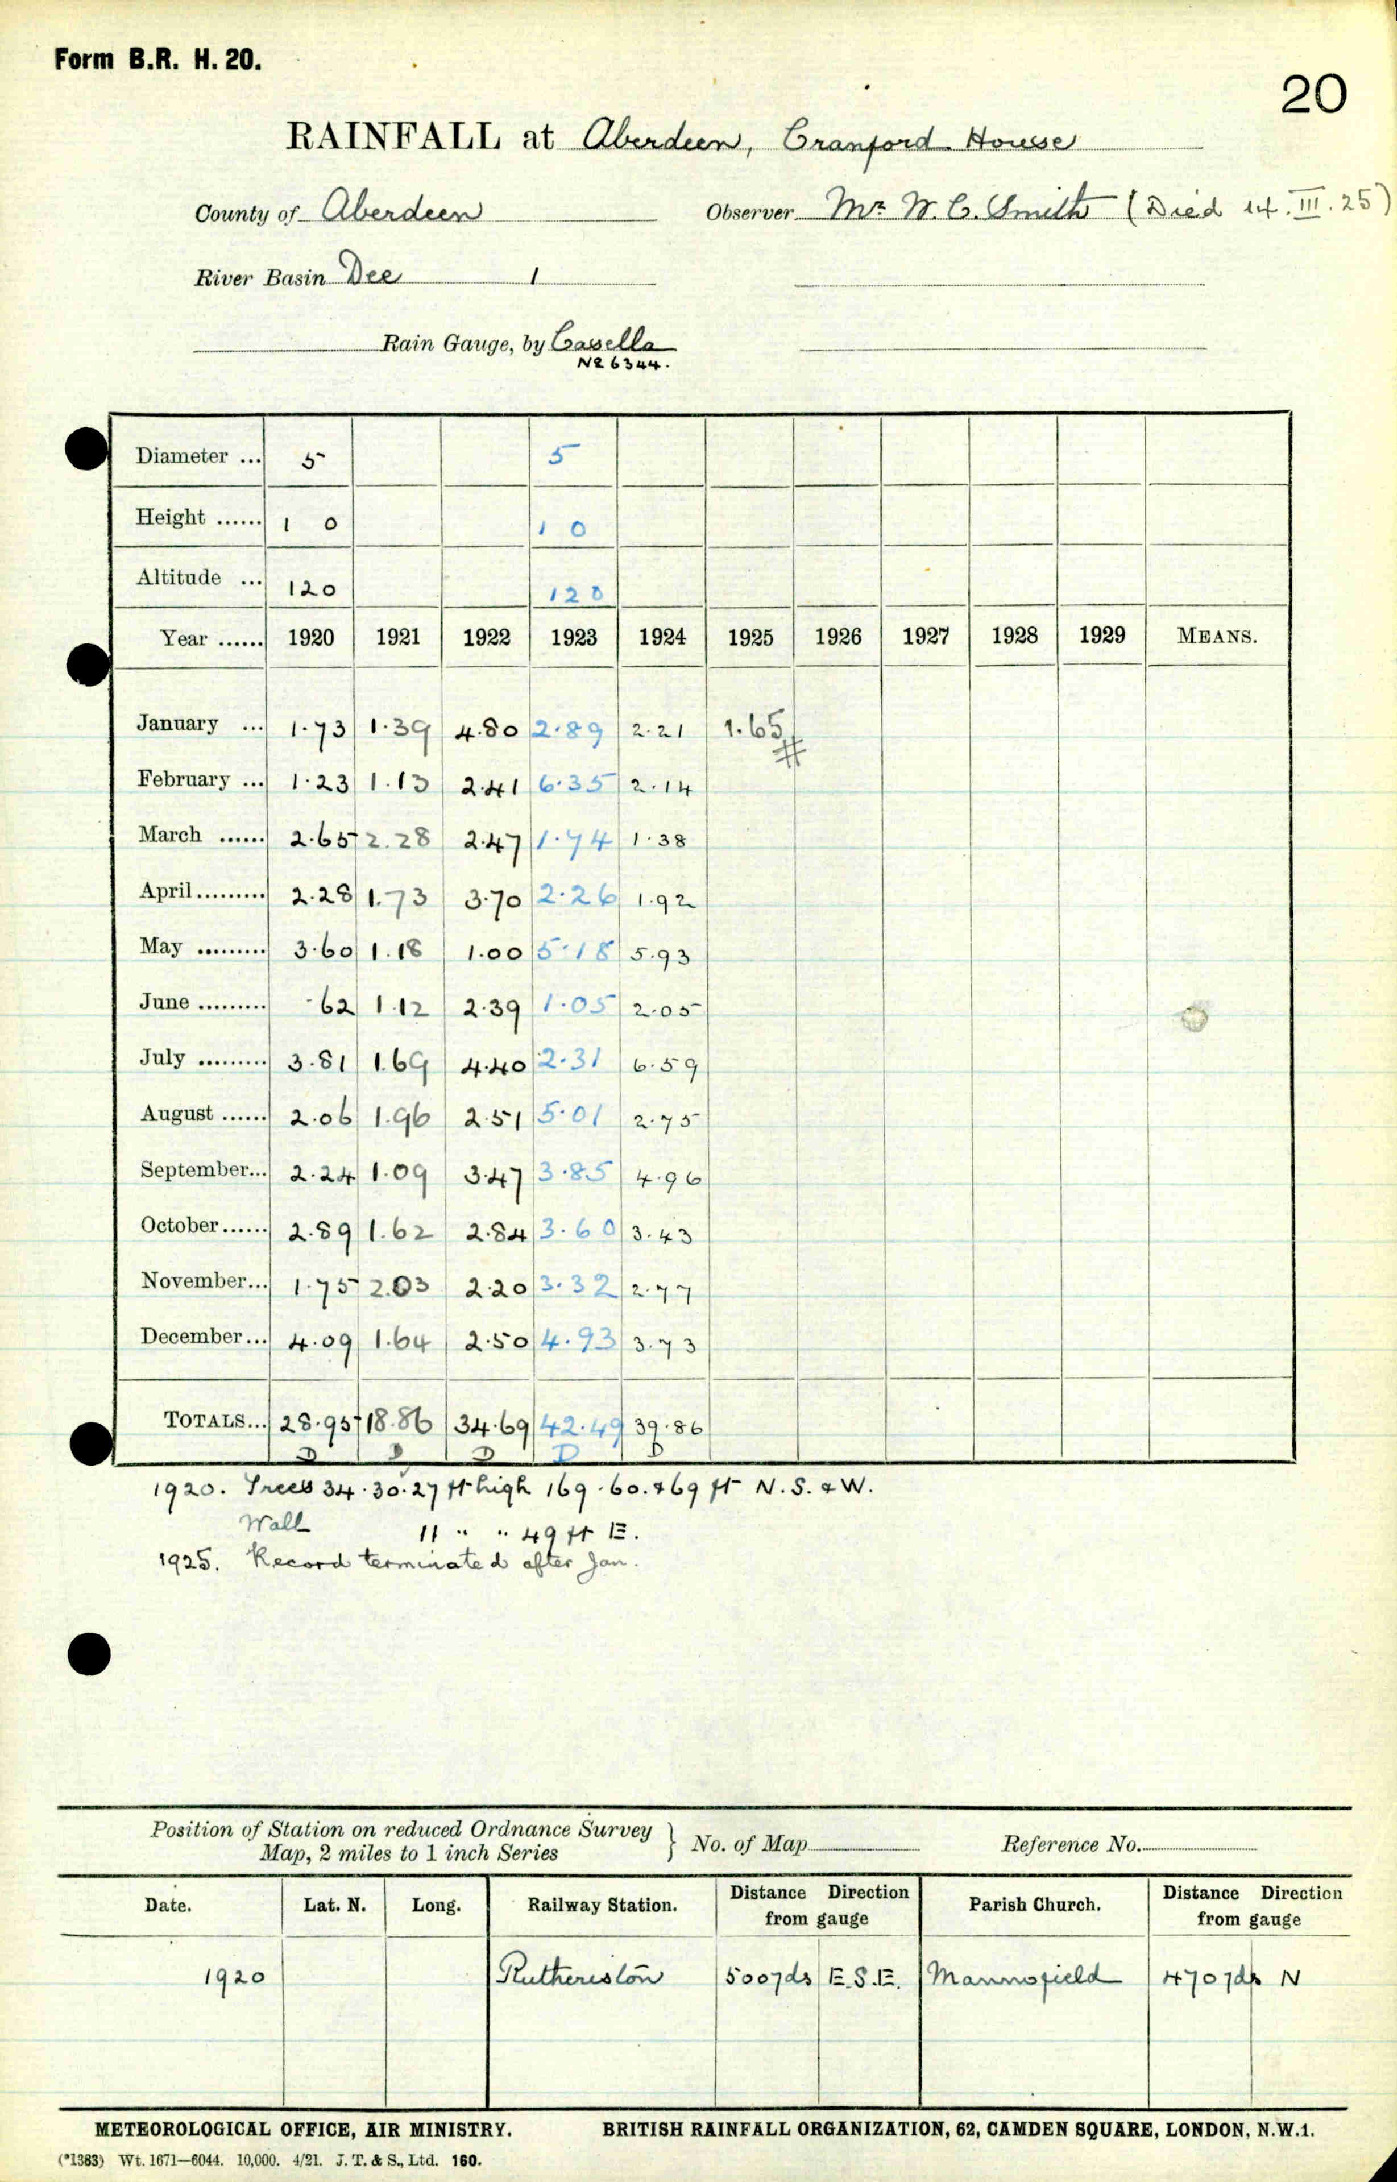 Form B.R. H. 20.
20
RAINFALL at Aberdeen, Cranford House
County of Aberdeen Observer Mr. W. C. Smith (Died 14.III.25)
River Basin Dee 1
Rain Gauge, by Casella
No 6344.
Diameter ... 5 5
Height ...... 1 0 1 0
Altitude ... 120 120
Year ...... 1920 1921 1922 1923 1924 1925 1926 1927 1928 1929 MEANS.
January ... 1.73 1.39 4.80 2.89 2.21 1.65 #
February ... 1.23 1.13 2.41 6.35 2.14
March ...... 2.65 2.28 2.47 1.74 1.38
April ......... 2.28 1.73 3.70 2.26 1.92
May ......... 3.60 1.18 1.00 5.18 5.93
June ......... .62 1.12 2.39 1.05 2.05
July ......... 3.81 1.69 4.40 2.31 6.59
August ...... 2.06 1.96 2.51 5.01 2.75
September... 2.24 1.09 3.47 3.85 4.96
October...... 2.89 1.62 2.84 3.60 3.43
November... 1.75 2.03 2.20 3.32 2.77
December... 4.09 1.64 2.50 4.93 3.73
TOTALS... 28.95 18.86 34.69 42.49 39.86
D D D D D
1920. Trees 34.30.27 ft high 169.60.&69 ft N.S.&W.
Wall 11 " " 49 ft E.
1925. Record terminated after Jan.
Position of Station on reduced Ordnance Survey
Map, 2 miles to 1 inch Series } No. of Map Reference No.
Date. Lat. N. Long. Railway Station. Distance Direction from gauge Parish Church. Distance Direction from gauge
1920 Ruthrieston 500yds E.S.E. Mannofield 470yds N
METEOROLOGICAL OFFICE, AIR MINISTRY. BRITISH RAINFALL ORGANIZATION, 62, CAMDEN SQUARE, LONDON, N.W.1.
(*1383) Wt. 1671—6044. 10,000. 4/21. J. T. & S., Ltd. 160.